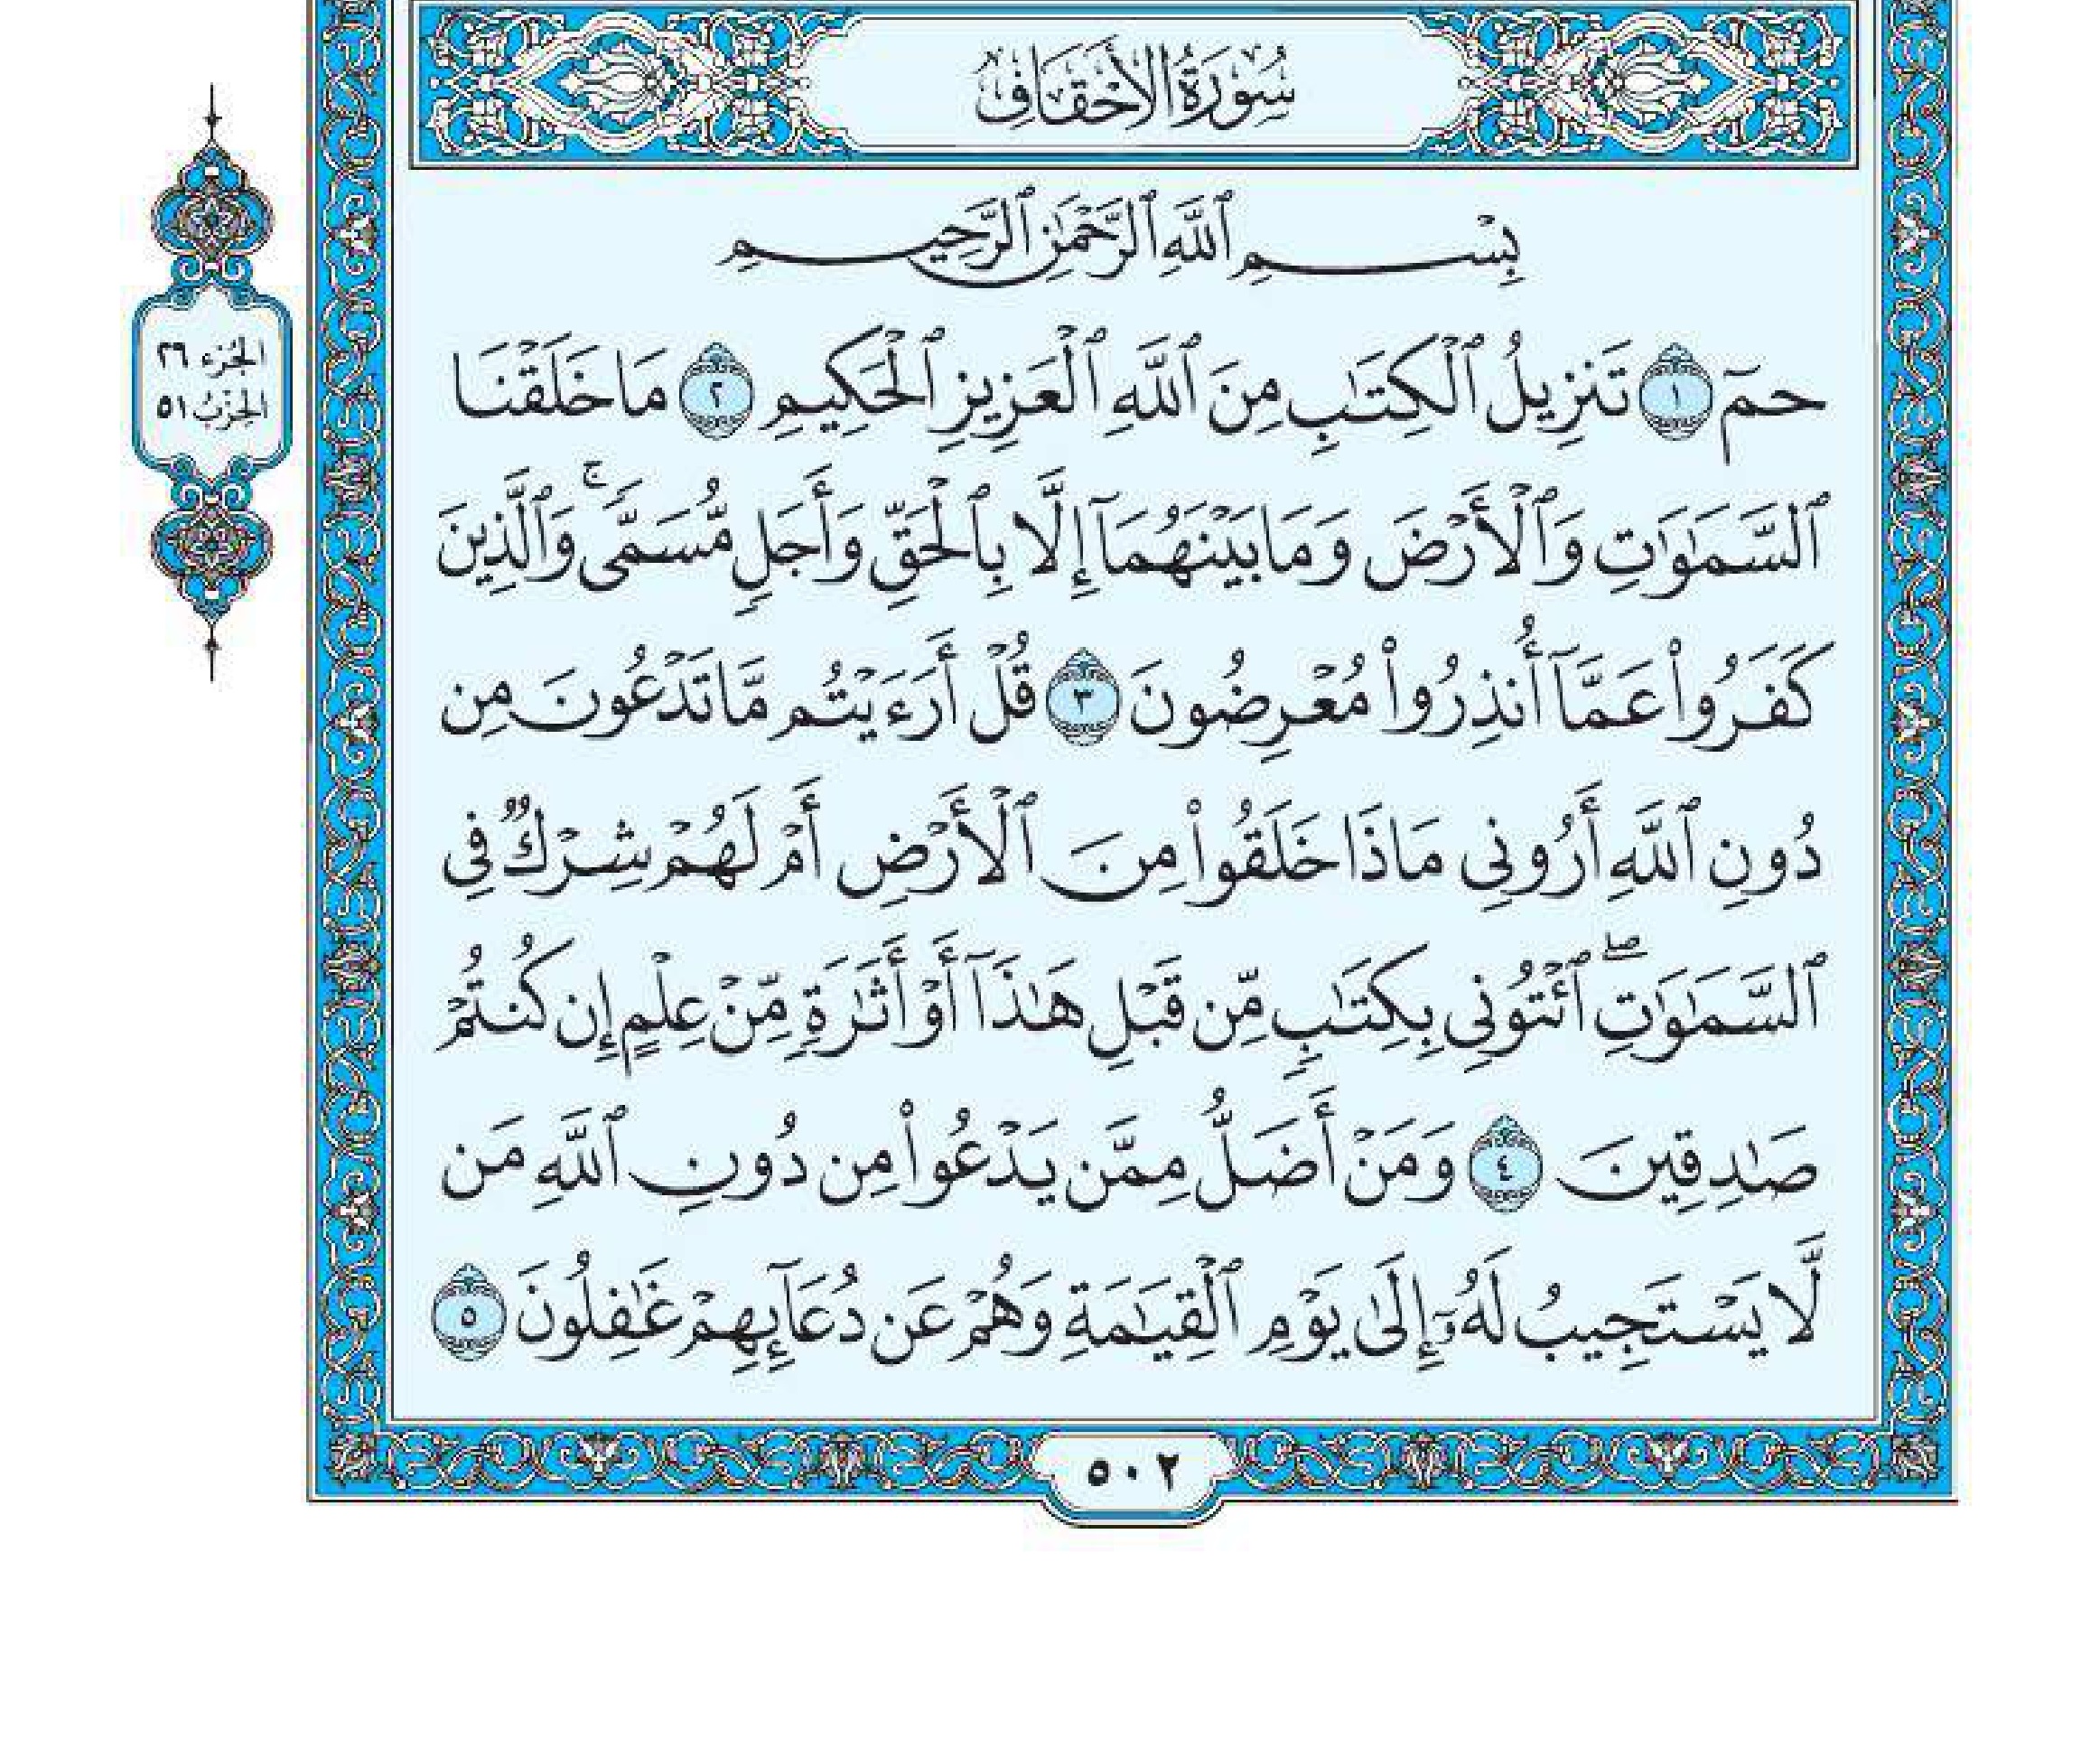 سُورَةُ الأَحْقَافِ
بِسْمِ ٱللَّهِ ٱلرَّحْمَٰنِ ٱلرَّحِيمِ
حمٓ ١ تَنزِيلُ ٱلْكِتَٰبِ مِنَ ٱللَّهِ ٱلْعَزِيزِ ٱلْحَكِيمِ ٢ مَا خَلَقْنَا
ٱلسَّمَٰوَٰتِ وَٱلْأَرْضَ وَمَا بَيْنَهُمَآ إِلَّا بِٱلْحَقِّ وَأَجَلٍ مُّسَمًّى ۚ وَٱلَّذِينَ
كَفَرُوا۟ عَمَّآ أُنذِرُوا۟ مُعْرِضُونَ ٣ قُلْ أَرَءَيْتُم مَّا تَدْعُونَ مِن
دُونِ ٱللَّهِ أَرُونِى مَاذَا خَلَقُوا۟ مِنَ ٱلْأَرْضِ أَمْ لَهُمْ شِرْكٌ فِى
ٱلسَّمَٰوَٰتِ ۖ ٱئْتُونِى بِكِتَٰبٍ مِّن قَبْلِ هَٰذَآ أَوْ أَثَٰرَةٍ مِّنْ عِلْمٍ إِن كُنتُمْ
صَٰدِقِينَ ٤ وَمَنْ أَضَلُّ مِمَّن يَدْعُوا۟ مِن دُونِ ٱللَّهِ مَن
لَّا يَسْتَجِيبُ لَهُۥٓ إِلَىٰ يَوْمِ ٱلْقِيَٰمَةِ وَهُمْ عَن دُعَآئِهِمْ غَٰفِلُونَ ٥
الجُزء ٢٦
الحِزْبُ ٥١
٥٠٢